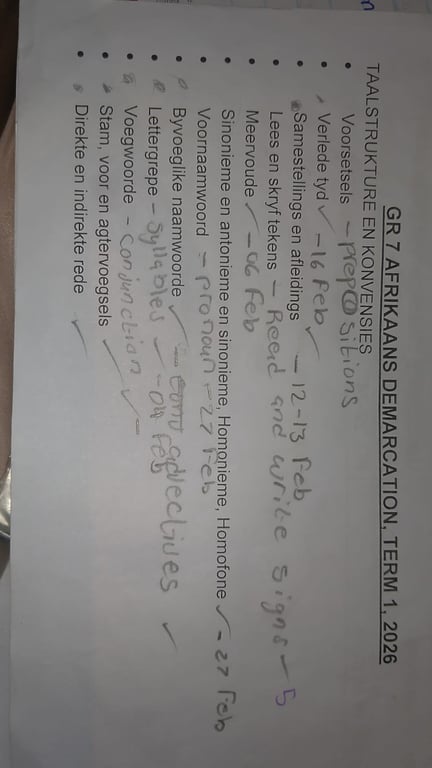 GR 7 AFRIKAANS DEMARCATION, TERM 1, 2026
TAALSTRUKTURE EN KONVENSIES
• Voorsetsels - prepositions
• Verlede tyd ✓ - 16 Feb
• Samestellings en afleidings ✓ - 12-13 Feb
• Lees en skryf tekens - Read and write signs - 5
• Meervoude ✓ - 06 Feb
• Sinonieme en antonieme en sinonieme, Homonieme, Homofone ✓ - 27 Feb
• Voornaamwoord - pronoun - 27 Feb
• Byvoeglike naamwoorde ✓ - adjectives ✓
• Lettergrepe - syllables ✓ - 04 Feb
• Voegwoorde - conjunction ✓ -
• Stam, voor en agtervoegsels ✓
• Direkte en indirekte rede ✓